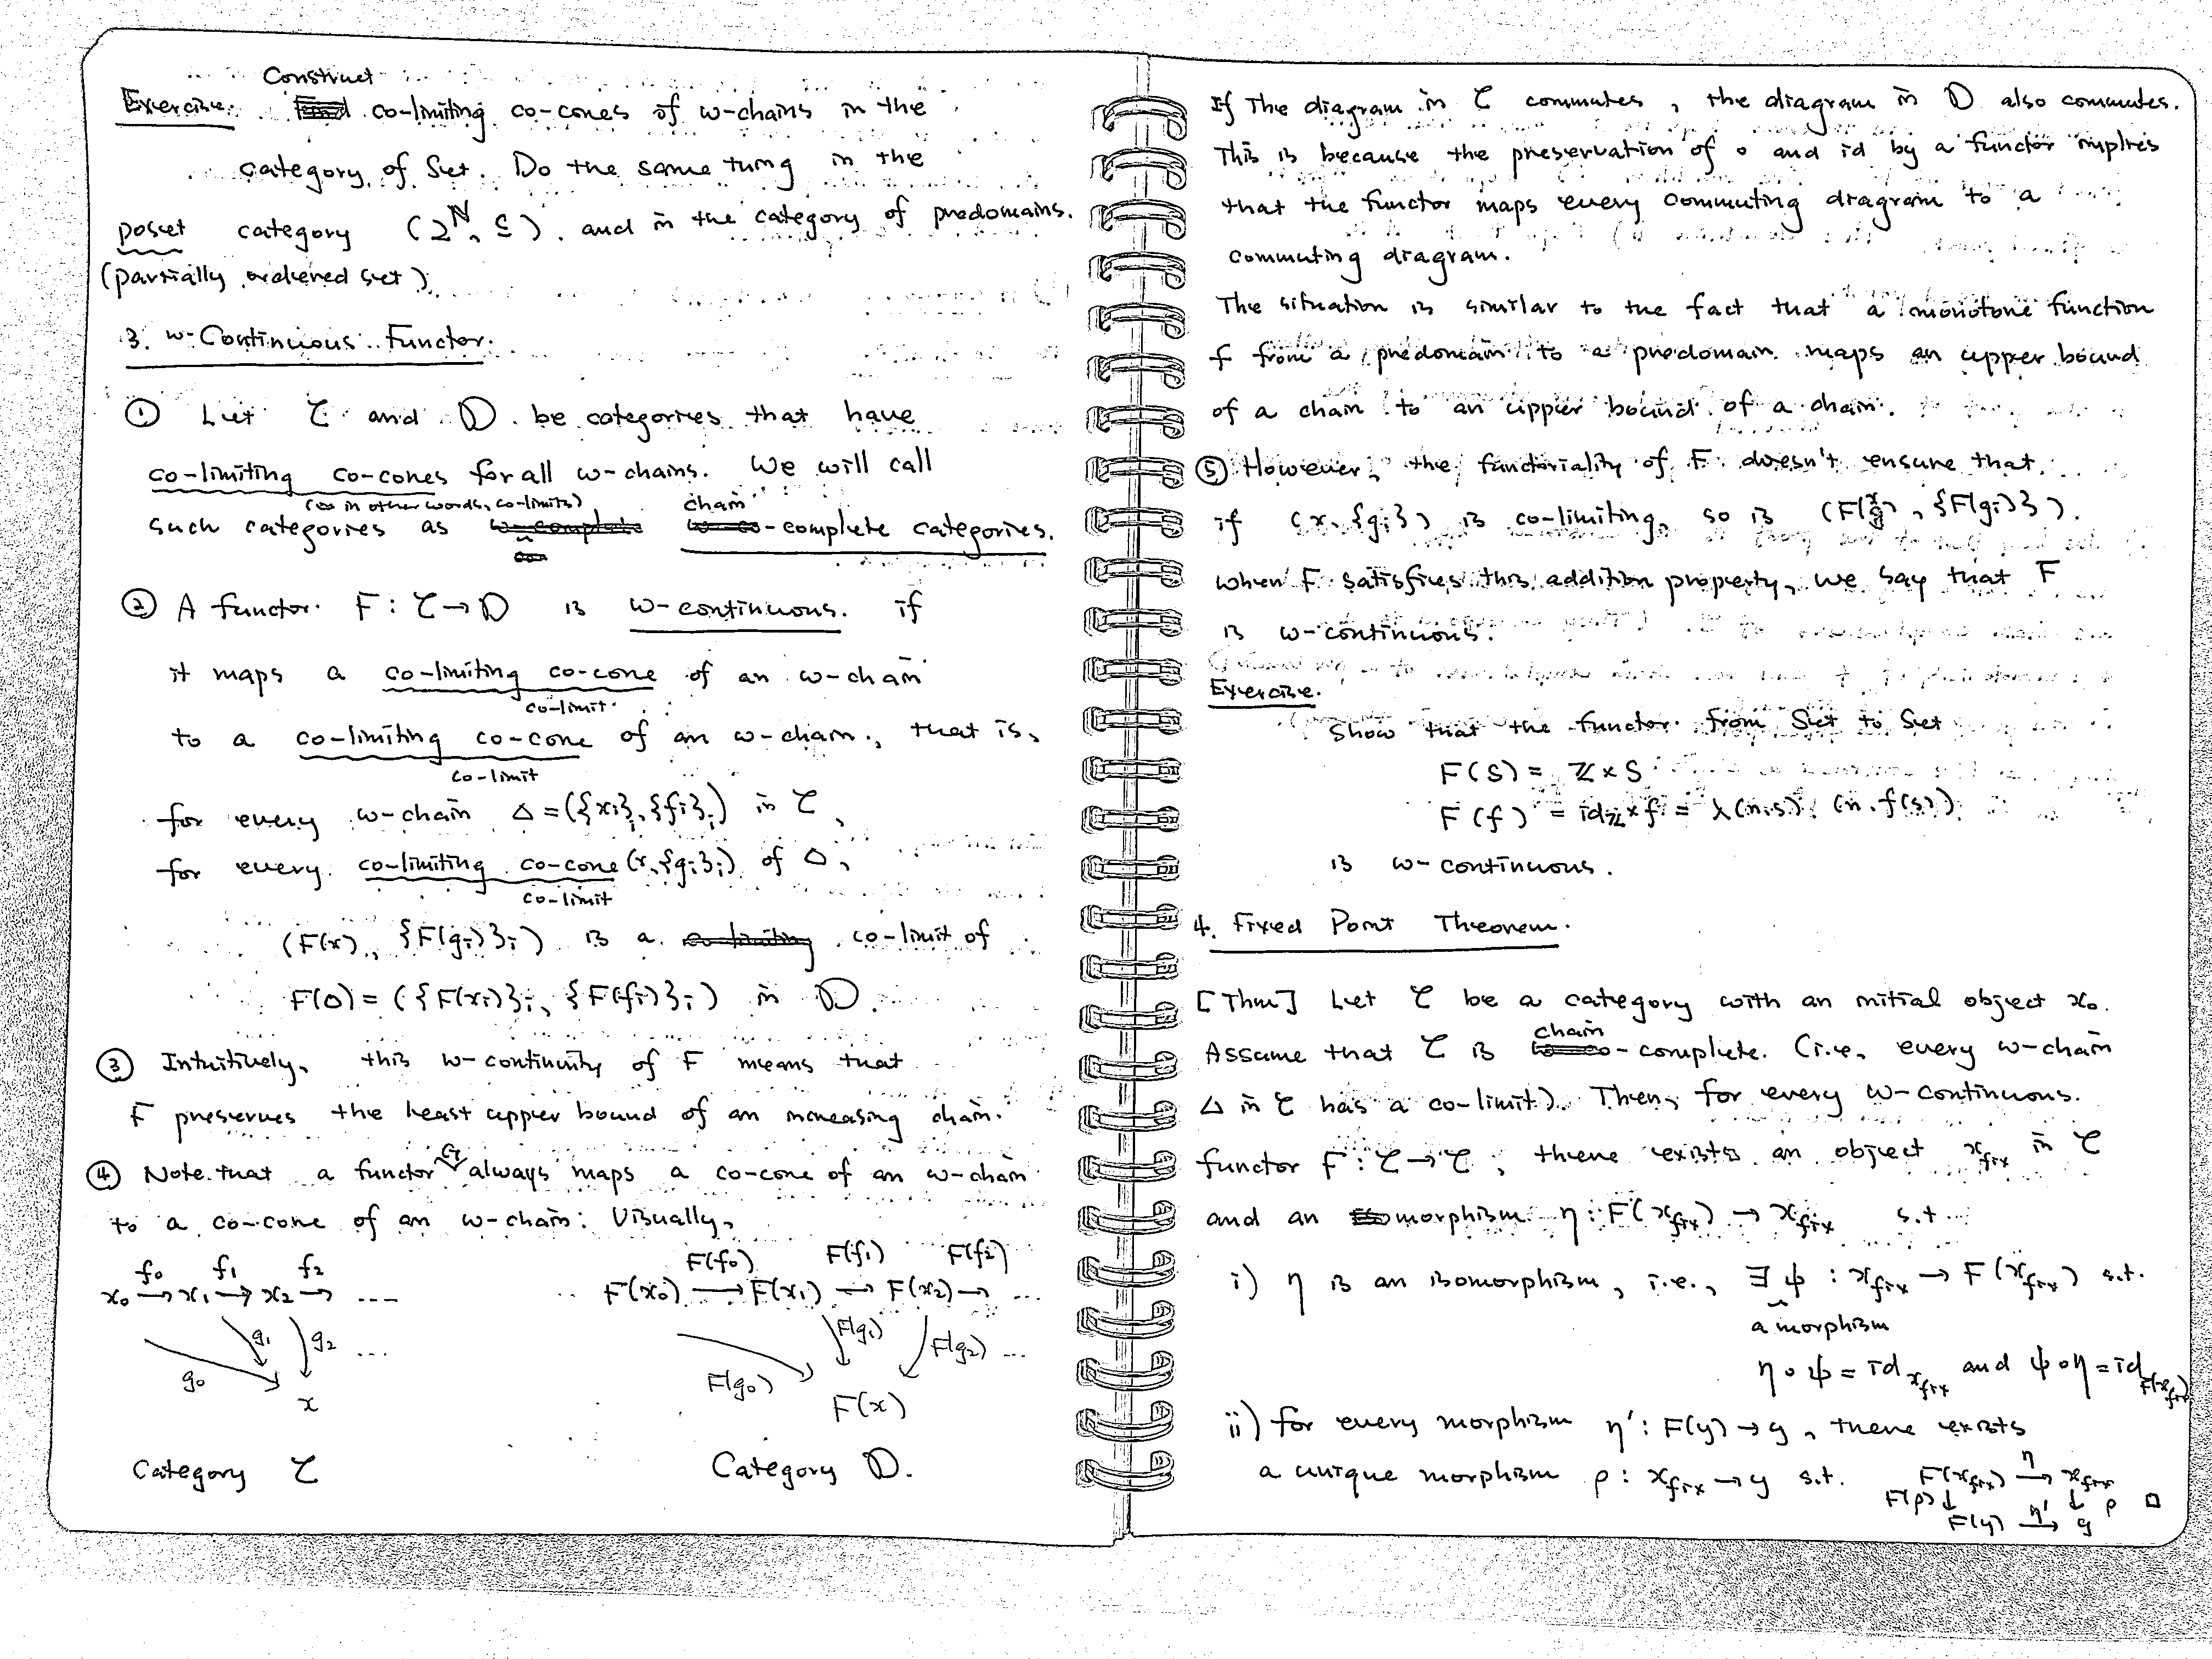 Construct
Exercise. co-limiting co-cones of ω-chains in the
category of Set. Do the same thing in the
poset category (2^ℕ, ⊆). and in the category of predomains.
(partially ordered set)
3. ω-Continuous Functor.
① Let C and D be categories that have
co-limiting co-cones for all ω-chains. We will call
(or in other words, co-limits) chain
such categories as -complete categories.
② A functor F : C → D is ω-continuous if
it maps a co-limiting co-cone of an ω-chain
co-limit
to a co-limiting co-cone of an ω-chain, that is,
co-limit
for every ω-chain Δ = ({xi}i, {fi}i) in C,
for every co-limiting co-cone (x, {gi}i) of Δ,
co-limit
(F(x), {F(gi)}i) is a co-limit of
F(Δ) = ({F(xi)}i, {F(fi)}i) in D.
③ Intuitively, this ω-continuity of F means that
F preserves the least upper bound of an increasing chain.
④ Note that a functor G always maps a co-cone of an ω-chain
to a co-cone of an ω-chain: Visually,
f0 f1 f2
x0 → x1 → x2 → ...
g0 g1 g2 ...
x
Category C
F(f0) F(f1) F(f2)
F(x0) → F(x1) → F(x2) → ...
F(g0) F(g1) F(g2) ...
F(x)
Category D.
If The diagram in C commutes, the diagram in D also commutes.
This is because the preservation of ∘ and id by a functor implies
that the functor maps every commuting diagram to a
commuting diagram.
The situation is similar to the fact that a monotone function
f from a predomain to a predomain maps an upper bound
of a chain to an upper bound of a chain.
⑤ However, the functoriality of F doesn't ensure that
if (x, {gi}) is co-limiting, so is (F(x), {F(gi)}).
When F satisfies this addition property, we say that F
is ω-continuous.
Exercise.
Show that the functor from Set to Set
F(S) = ℤ × S
F(f) = idℤ × f = λ(n,s). (n, f(s))
is ω-continuous.
4. Fixed Point Theorem.
[Thm] Let C be a category with an initial object x0.
chain
Assume that C is -complete. (i.e., every ω-chain
Δ in C has a co-limit). Then, for every ω-continuous
functor F : C → C, there exists an object xfix in C
and an morphism η : F(xfix) → xfix s.t.
i) η is an isomorphism, i.e., ∃ ψ : xfix → F(xfix) s.t.
a morphism
η ∘ ψ = id xfix and ψ ∘ η = id F(xfix)
ii) for every morphism η' : F(y) → y, there exists
a unique morphism ρ : xfix → y s.t. F(xfix) η→ xfix
F(ρ)↓ ↓ ρ □
F(y) η'→ y